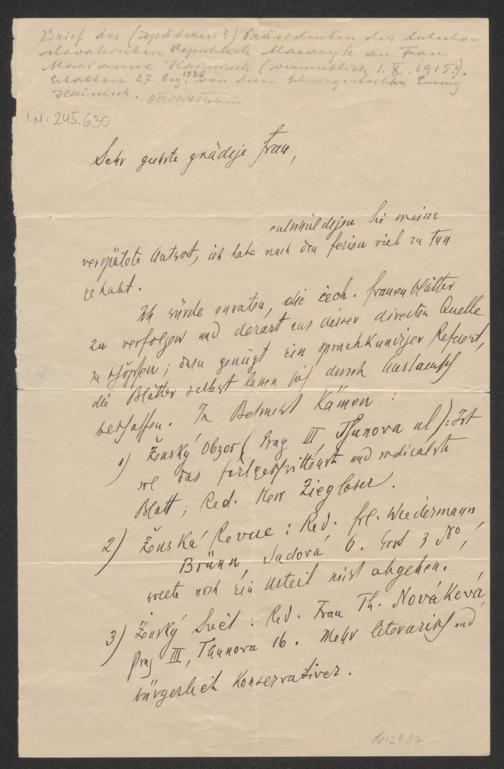 Brief des (späteren?) Präsidenten der tschecho-
slovakischen Republik Masaryk an Frau
Marianne Hainisch (vermutlich 1. X. 1915?).
Erhalten 27. Aug. 1936 von deren Schwiegertochter Emmy
Hainisch.
I.N. 245.630
Sehr geehrte gnädige Frau,
entschuldigen Sie meine
verspätete Antwort, ich habe nach den Ferien viel zu tun
gehabt.
Ich würde anraten, die čech. Frauenblätter
zu verfolgen und derart aus dieser directen Quelle
zu schöpfen; dazu genügt ein sprachkundiger Referent,
die Blätter selbst lassen sich durch Austausch
verschaffen. In Betracht kämen:
1) Ženský Obzor (Prag III, Thunova ul): Ist
wol das fortgeschrittenste und radicalste
Blatt; Red. Herr Ziegloser.
2) Ženská Revue: Red. Frl. Wiedermann
Brünn, Sadová 6. Erst 3 No,
möchte noch ein Urteil nicht abgeben.
3) Ženský Svět: Red. Frau Th. Nováková,
Prag III, Thunova 16. Mehr literarisch und
bürgerlich konservativer.